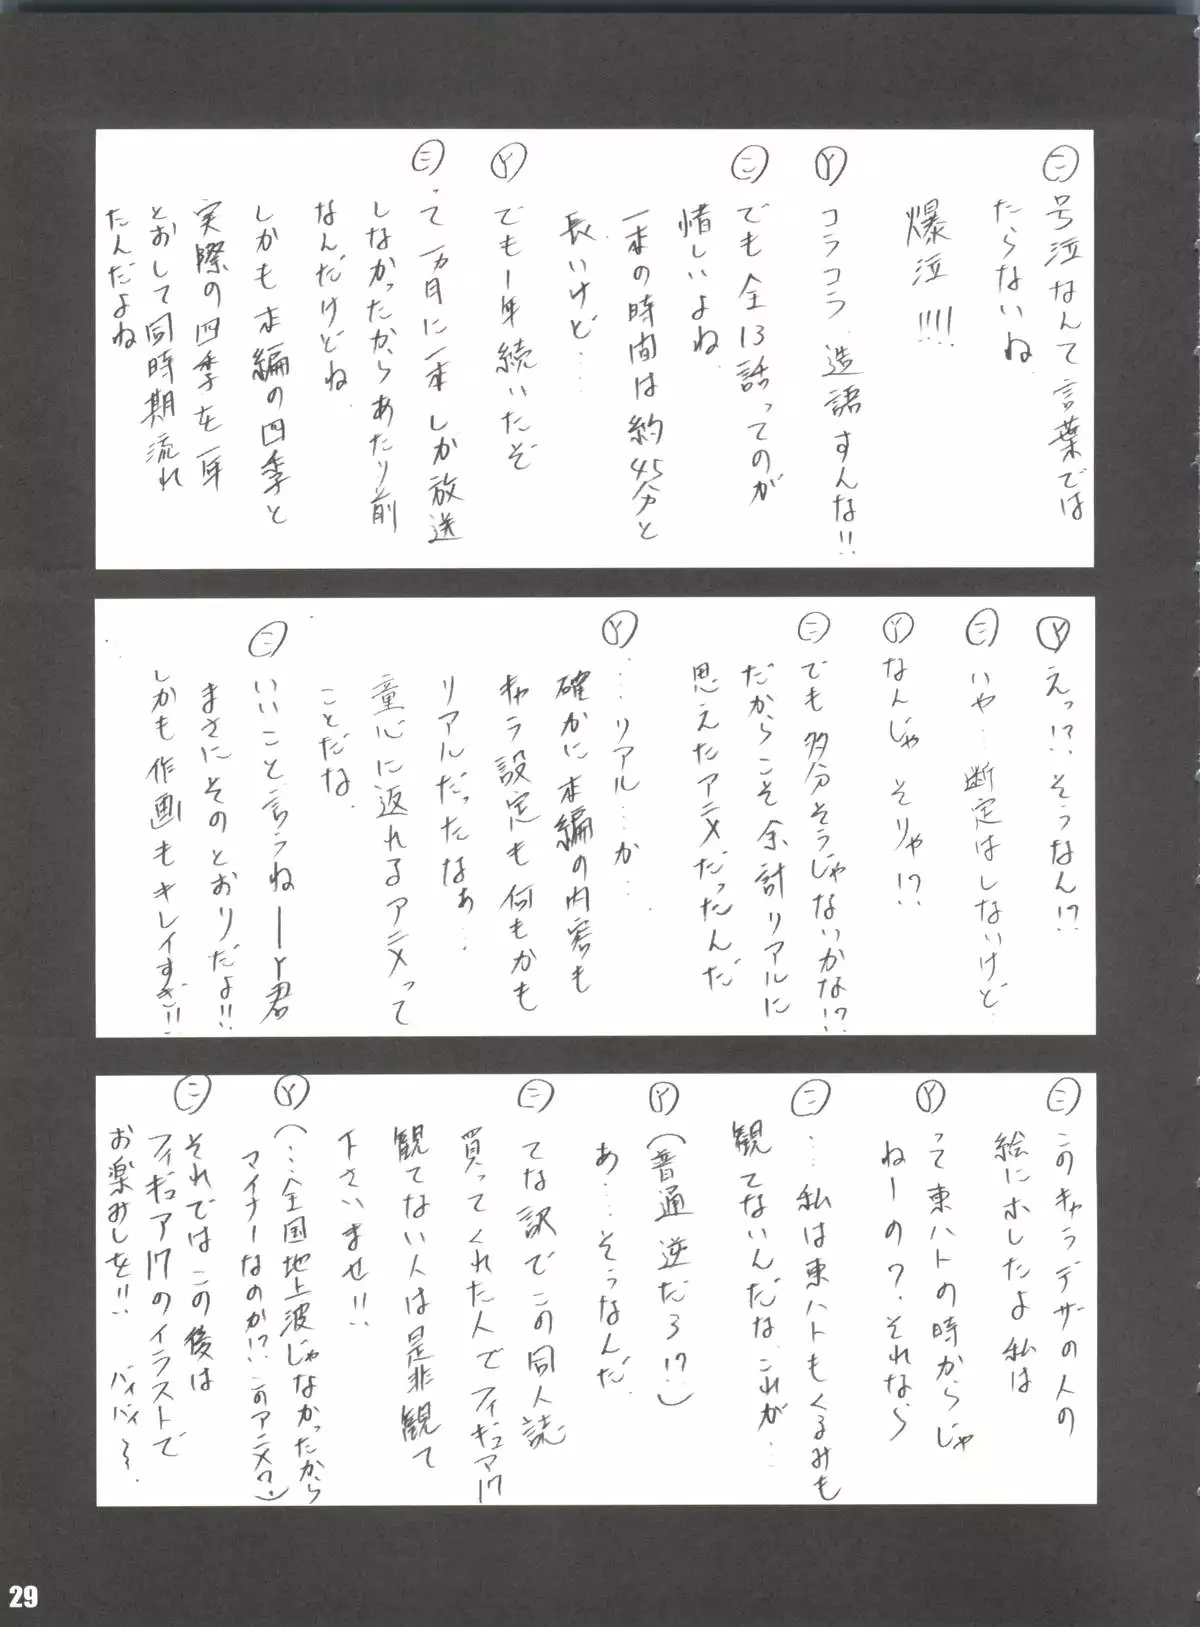 ㊁ 号泣なんて言葉では
たらないね。
爆泣!!!!
Ⓨ コラコラ、造語すんな!!
㊁ でも全13話ってのが
惜しいよね。
一本の時間は約45分と
長いけど…
Ⓨ でも1年続いたぞ
㊁ って一ヵ月に一本しか放送
しなかったからあたり前
なんだけどね。
しかも本編の四季と
実際の四季を一年
とおして同時期流れ
たんだよね
Ⓨ えっ!?そうなん!?
㊁ いや…断定はしないけど…
Ⓨ なんじゃそりゃ!?
㊁ でも多分そうじゃないかな!?
だからこそ余計リアルに
思えたアニメだったんだ
Ⓨ …リアル…か…
確かに本編の内容も
キャラ設定も何もかも
リアルだったなぁ…
童心に返れるアニメって
ことだな。
㊁ いいこと言うねーY君
まさにそのとおりだよ!!
しかも作画もキレイすぎ!!
㊁ このキャラデザの人の
絵にホレたよ私は
Ⓨ って東ハトの時からじゃ
ねーの?それなら
㊁ …私は東ハトもくるみも
観てないんだな、これが…
Ⓨ (普通逆だろ!?)
あ…そうなんだ。
㊁ てな訳でこの同人誌
買ってくれた人でフィギュア17
観てない人は是非観て
下さいませ!!
Ⓨ (…全国地上波じゃなかったから
マイナーなのか!?このアニメ?)
㊁ それではこの後は
フィギュア17のイラストで
お楽みしを!! バイバイ〜
29